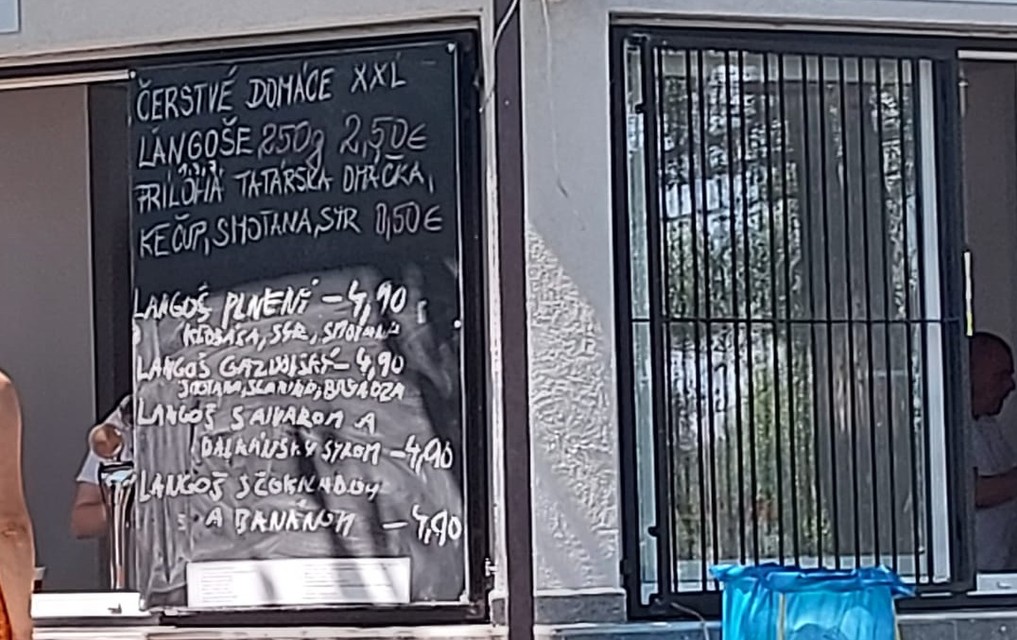 ČERSTVÉ DOMÁCE XXL
LANGOŠE 250g 2,50€
PRÍLOHA TATÁRSKA OMÁČKA,
KEČUP, SMOTANA, SYR 0,50€
LANGOŠ PLNENÝ - 4,90
KLOBÁSA, SYR, SMOTANA
LANGOŠ GAZDOVSKÝ - 4,90
SMOTANA, SLANINA, BRYNDZA
LANGOŠ S AIVAROM A
BALKÁNSKY SYROM - 4,90
LANGOŠ S ČOKOLÁDOU
A BANÁNOM - 4,90